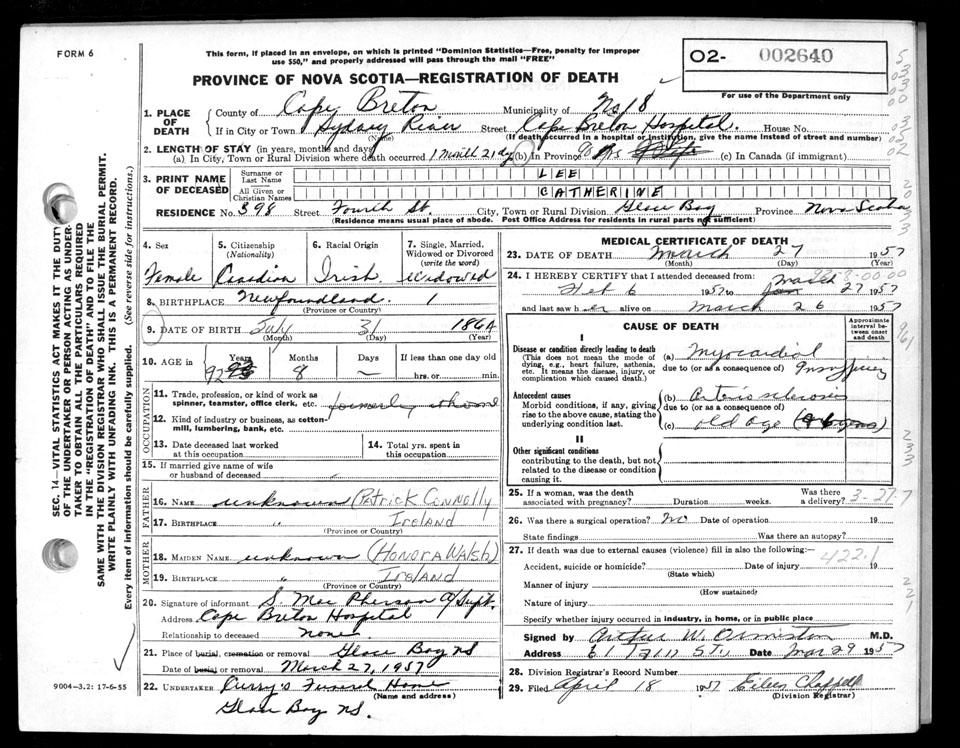 FORM 6
This form, if placed in an envelope, on which is printed "Dominion Statistics—Free, penalty for improper
use $50," and properly addressed will pass through the mail "FREE"
PROVINCE OF NOVA SCOTIA—REGISTRATION OF DEATH
02- 002640
For use of the Department only
SEC. 14—VITAL STATISTICS ACT MAKES IT THE DUTY
OF THE UNDERTAKER OR PERSON ACTING AS UNDER-
TAKER TO OBTAIN ALL THE PARTICULARS REQUIRED
IN THE "REGISTRATION OF DEATH" AND TO FILE THE
SAME WITH THE DIVISION REGISTRAR WHO SHALL ISSUE THE BURIAL PERMIT.
WRITE PLAINLY WITH UNFADING INK. THIS IS A PERMANENT RECORD.
Every item of information should be carefully supplied. (See reverse side for instructions.)
9004-3.2: 17-6-55
1. PLACE OF DEATH
County of Cape Breton Municipality of No 18
If in City or Town Sydney River Street Cape Breton Hospital. House No.
(Name) (If death occurred in a hospital or institution, give the name instead of street and number)
2. LENGTH OF STAY (in years, months and days)
(a) In City, Town or Rural Division where death occurred 1 month 21 dys (b) In Province (c) In Canada (if immigrant)
3. PRINT NAME OF DECEASED
Surname or Last Name LEE
All Given or Christian Names CATHERINE
RESIDENCE No. 398 Street Fourth St. City, Town or Rural Division Glace Bay Province Nova Scotia
(Residence means usual place of abode. Post Office Address for residents in rural parts not sufficient)
4. Sex
Female
5. Citizenship
(Nationality)
Canadian
6. Racial Origin
Irish
7. Single, Married,
Widowed or Divorced
(write the word)
widowed
8. BIRTHPLACE Newfoundland. 1
(Province or Country)
9. DATE OF BIRTH July 31 1864
(Month) (Day) (Year)
10. AGE in Years Months Days If less than one day old
92 8 — hrs. or min.
OCCUPATION
11. Trade, profession, or kind of work as
spinner, teamster, office clerk, etc. formerly at home
12. Kind of industry or business, as cotton-
mill, lumbering, bank, etc.
13. Date deceased last worked
at this occupation
14. Total yrs. spent in
this occupation
15. If married give name of wife
or husband of deceased
FATHER
16. NAME unknown (PATRICK CONNOLLY)
17. BIRTHPLACE " IRELAND
(Province or Country)
MOTHER
18. MAIDEN NAME unknown (HONORA WALSH)
19. BIRTHPLACE " IRELAND
(Province or Country)
20. Signature of informant S. MacPherson A/Supt.
Address Cape Breton Hospital
Relationship to deceased none.
21. Place of burial, cremation or removal Glace Bay NS
Date of burial or removal March 27, 1957
22. UNDERTAKER Curry's Funeral Home
(Name and address)
Glace Bay NS.
MEDICAL CERTIFICATE OF DEATH
23. DATE OF DEATH March 27 1957
(Month) (Day) (Year)
24. I HEREBY CERTIFY that I attended deceased from:
Feb 6 1957 to March 27 1957
and last saw her alive on March 26 1957
CAUSE OF DEATH
Approximate
interval be-
tween onset
and death
I
Disease or condition directly leading to death
(This does not mean the mode of
dying, e.g., heart failure, asthenia,
etc. It means the disease, injury, or
complication which caused death.)
(a) Myocardial
due to (or as a consequence of) Insufficiency
Antecedent causes
Morbid conditions, if any, giving
rise to the above cause, stating the
underlying condition last.
(b) Arteriosclerosis
due to (or as a consequence of)
(c) old age
II
Other significant conditions
contributing to the death, but not
related to the disease or condition
causing it.
25. If a woman, was the death
associated with pregnancy? Duration weeks. Was there
a delivery? 3-27-7
26. Was there a surgical operation? no Date of operation 19
State findings Was there an autopsy?
27. If death was due to external causes (violence) fill in also the following:—
422.1
Accident, suicide or homicide? Date of injury 19
(State which)
Manner of injury
(How sustained)
Nature of injury
Specify whether injury occurred in industry, in home, or in public place
Signed by Arthur W. Ormiston M.D.
Address Date Mar 29 1957
28. Division Registrar's Record Number
29. Filed April 18 1957 Eileen Chappell
(Division Registrar)